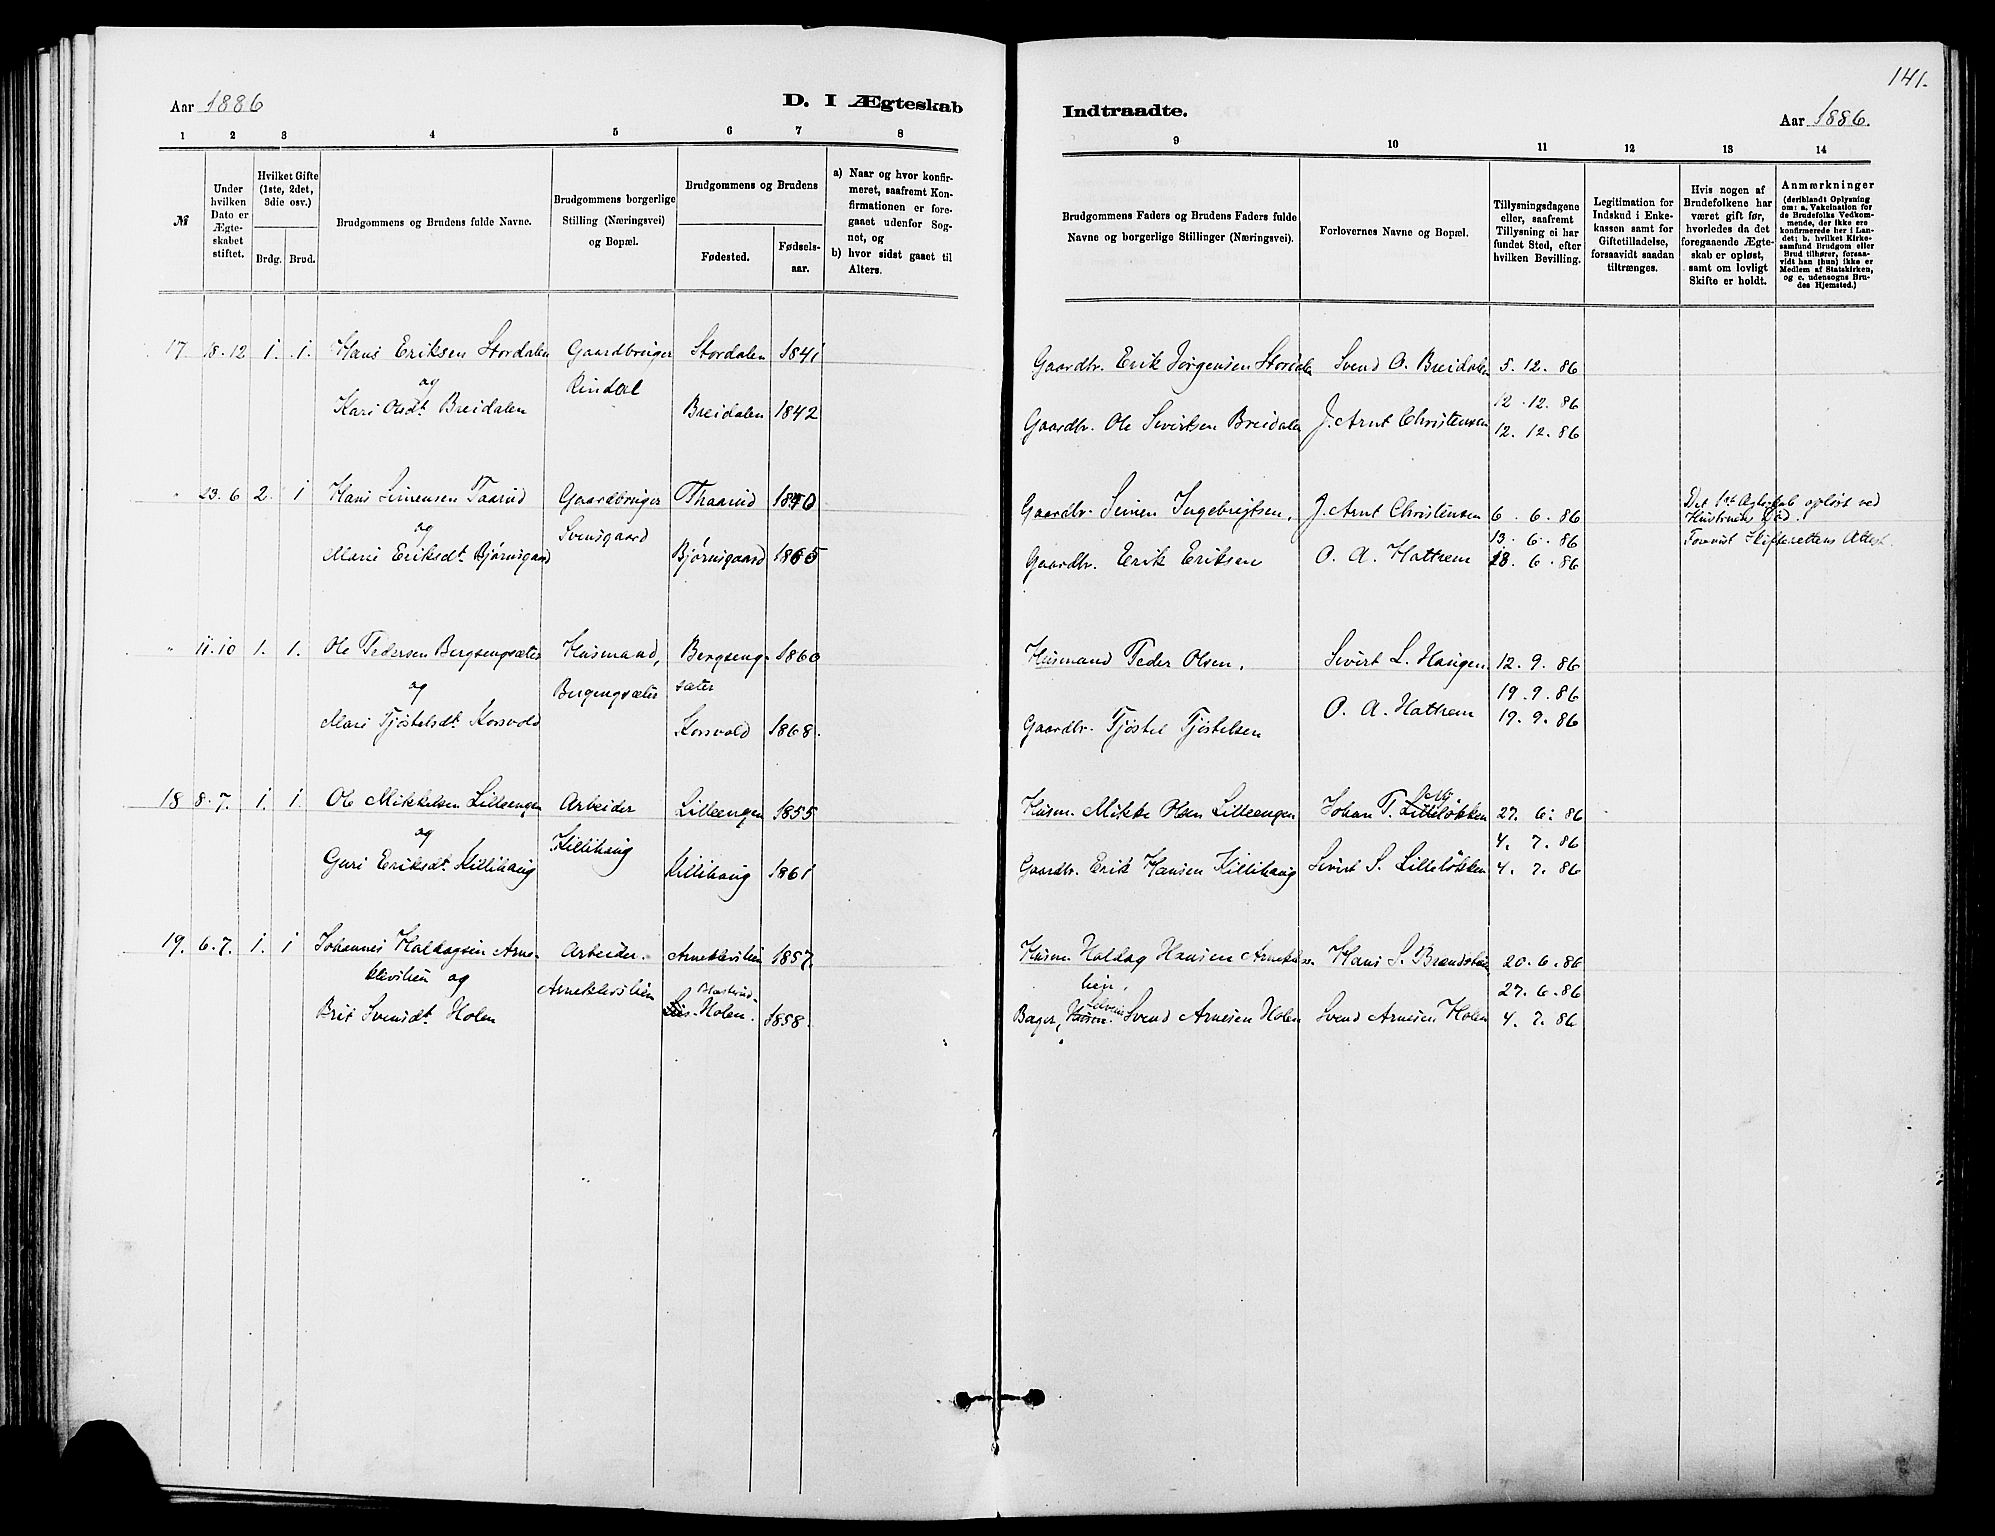 141.
Aar 1886
D. I Ægteskab
Indtraadte.
Aar 1886.
1 2 3 4 5 6 7 8
9 10 11 12 13 14
№
Under
hvilken
Dato er
Ægte-
skabet
stiftet.
Hvilket Gifte
(1ste, 2det,
3die osv.)
Brdg. Brud.
Brudgommens og Brudens fulde Navne.
Brudgommens borgerlige
Stilling (Næringsvei)
og Bopæl.
Brudgommens og Brudens
Fødested.
Fødsels-
aar.
a) Naar og hvor konfir-
meret, saafremt Kon-
firmationen er fore-
gaaet udenfor Sog-
net, og
b) hvor sidst gaaet til
Alters.
Brudgommens Faders og Brudens Faders fulde
Navne og borgerlige Stillinger (Næringsvei).
Forlovernes Navne og Bopæl.
Tillysningsdagene
eller, saafremt
Tillysning ei har
fundet Sted, efter
hvilken Bevilling.
Legitimation for
Indskud i Enke-
kassen samt for
Giftetilladelse,
forsaavidt saadan
tiltrænges.
Hvis nogen af
Brudefolkene har
været gift før,
hvorledes da det
foregaaende Ægte-
skab er opløst,
samt om lovligt
Skifte er holdt.
Anmærkninger
(deriblandt Oplysning
om: a. Vakcination for
de Brudefolks Vedkom-
mende, der ikke ere
konfirmerede her i Lan-
det; b. hvilket Kirke-
samfund Brudgom eller
Brud tilhører, forsaa-
vidt han (hun) ikke er
Medlem af Statskirken,
og c. udensogns Bru-
des Hjemsted.)
17 18.12 1. 1. Hans Eriksen Stordalen Gaardbruger Stordalen 1841
og Rindal
Kari Olsdt. Breidalen Breidalen 1842
Gaardbr. Erik Jørgensen Stordalen Svend O. Breidalen 5. 12. 86
12. 12. 86
Gaardbr. Ole Sivertsen Breidalen J. Arnt Christensen 12. 12. 86
" 23.6 2. 1 Hans Simensen Taarud Gaardbruger Thaarud 1840
og Svensgaard
Mari Eriksdt. Bjørnsgaard Bjørnsgaard 1865
Gaardbr. Simen Ingebrigtsen, J. Arnt Christensen 6. 6. 86
13. 6. 86
Gaardbr. Erik Eriksen O. A. Hattrem 13. 6. 86
Det 1ste Ægteskab opløst ved
Hustruens Død.
Forevist Skifterettens Attest.
" 11.10 1. 1. Ole Pedersen Bergsengsæter Husmand, Bergseng- 1860
og Bergengsæter sæter
Mari Tjøstelsdt. Korsvold Korsvold 1868.
Husmand Peder Olsen, Sivert L. Haugen 12. 9. 86
19. 9. 86
Gaardbr. Tjøstel Tjøstelsen O. A. Hattrem 19. 9. 86
18 8.7. 1. 1. Ole Mikkelsen Lilleengen Arbeider Lilleengen 1855
og Killihaug
Guri Eriksdt. Killihaug Killihaug 1861
Husm. Mikke Olsen Lilleengen Johan P. Lilleløkken 27. 6. 86
4. 7. 86
Gaardbr. Erik Hansen Killihaug Sivert S. Lilleløkken 4. 7. 86
19. 6.7. 1. 1 Johannes Haldagsen Arne- Arbeider. Arneklevlien 1857.
klevlien og Arneklevslien
Brit Svensdt. Holen Holen. 1858.
Husm. Haldag Hansen Arneklevs- Hans S. Brandstuen 20. 6. 86
lien, 27. 6. 86
Bager, Svend Arnesen Holen Svend Arnesen Holen 4. 7. 86